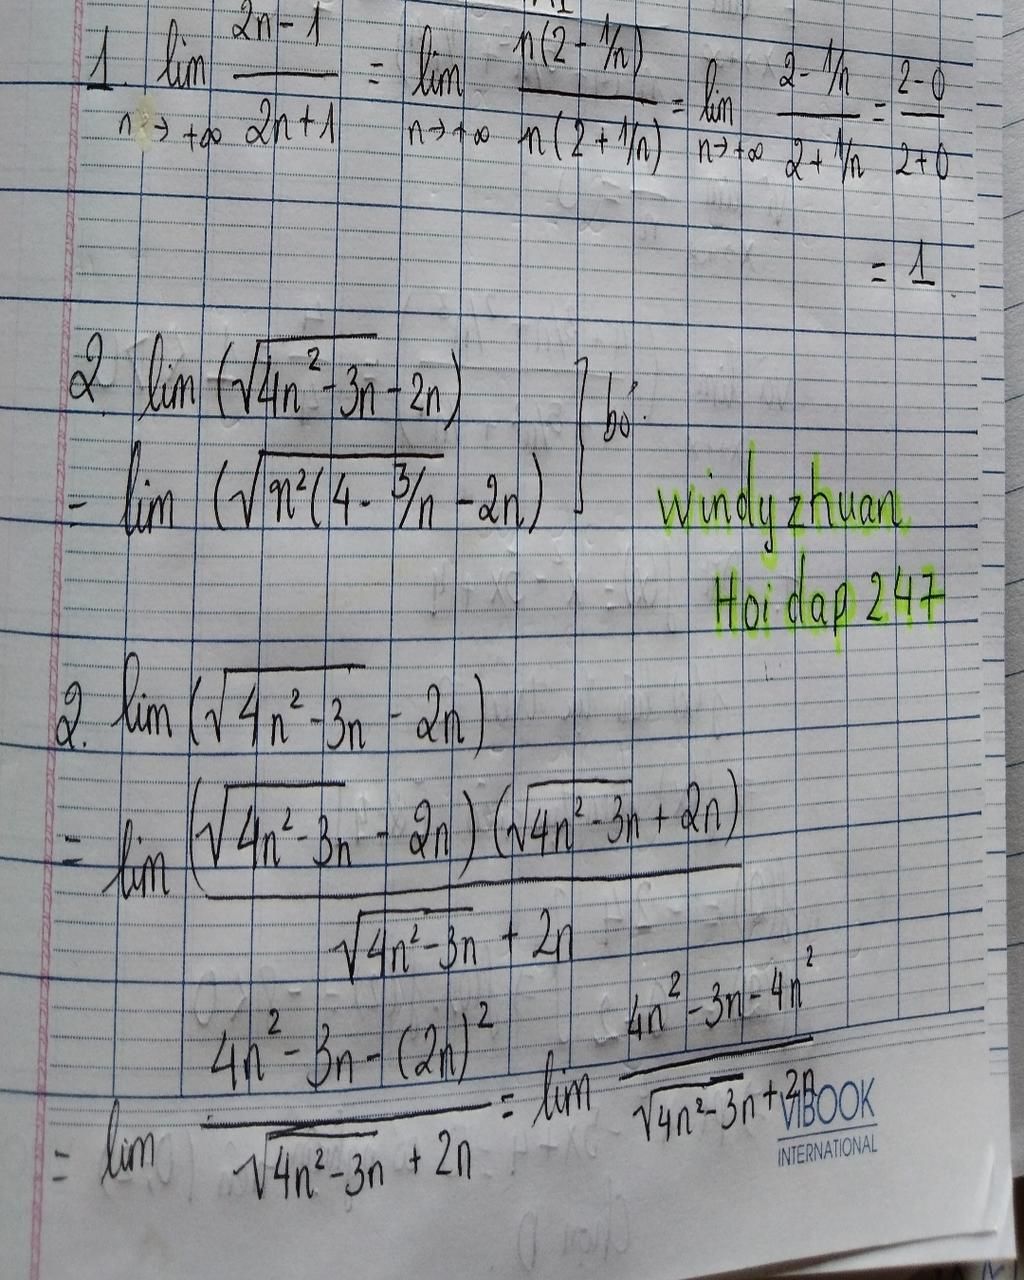 1. lim n→+∞ (2n-1)/(2n+1) = lim n→+∞ n(2-1/n)/n(2+1/n) = lim n→+∞ (2-1/n)/(2+1/n) = (2-0)/(2+0)
= 1
2. lim (√(4n²-3n) - 2n) ] bỏ.
= lim (√(n²(4-3/n) - 2n)
windy zhuan.
Hoi dap 247
2. lim (√(4n²-3n) - 2n)
= lim (√(4n²-3n) - 2n)(√(4n²-3n) + 2n)/(√(4n²-3n) + 2n)
= lim (4n²-3n-(2n)²)/(√(4n²-3n) + 2n) = lim (4n²-3n-4n²)/(√(4n²-3n) + 2n)
VIBOOK
INTERNATIONAL